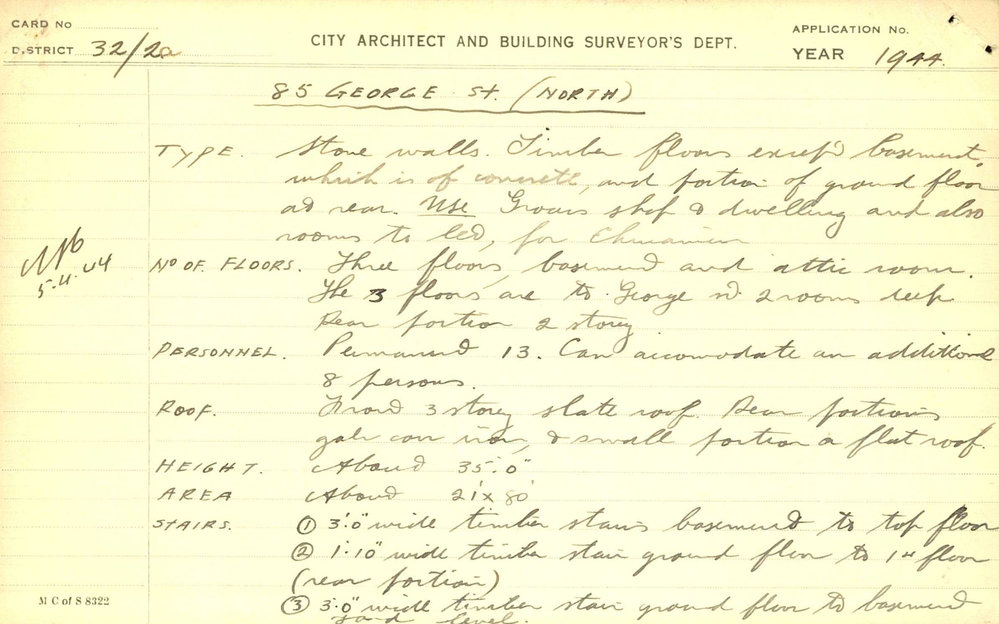 CARD No
DISTRICT 32/2a
CITY ARCHITECT AND BUILDING SURVEYOR'S DEPT.
APPLICATION No.
YEAR 1944.
85 GEORGE St. (NORTH)
TYPE. Stone walls. Timber floors except basement,
which is of concrete, and portion of ground floor
at rear. USE Grocers shop & dwelling and also
rooms to let, for
5.4.44
No OF FLOORS. Three floors, basement and attic room.
The 3 floors are to George St. 2 rooms deep
Rear portion 2 storey
PERSONNEL. Permanent 13. Can accomodate an additional
8 persons.
ROOF. Front 3 storey slate roof. Rear portions
galv corr iron, & small portion a flat roof.
HEIGHT. About 35'.0"
AREA About 21' x 80'
STAIRS. ① 3'.0" wide timber stairs basement to top floor
② 1'.10" wide timber stair ground floor to 1st floor
(rear portion)
③ 3'.0" wide timber stair ground floor to basement
yard level.
M C of S 8322